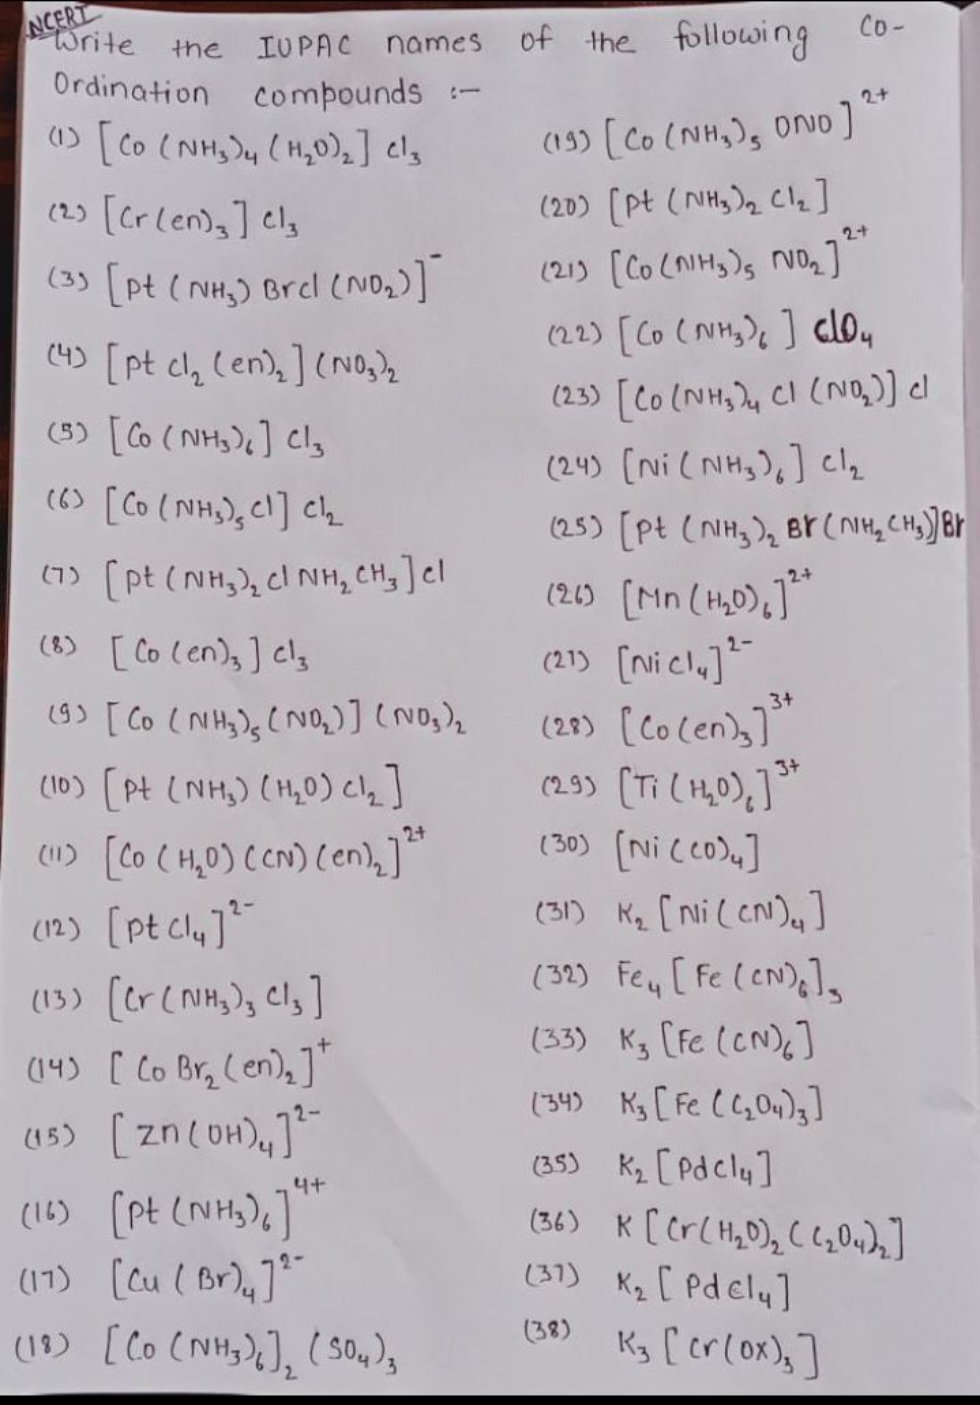 NCERT
Write the IUPAC names of the following Co-
Ordination compounds :-
(1) [Co(NH₃)₄(H₂O)₂]Cl₃
(2) [Cr(en)₃]Cl₃
(3) [Pt(NH₃)BrCl(NO₂)]⁻
(4) [PtCl₂(en)₂](NO₃)₂
(5) [Co(NH₃)₆]Cl₃
(6) [Co(NH₃)₅Cl]Cl₂
(7) [Pt(NH₃)₂ClNH₂CH₃]Cl
(8) [Co(en)₃]Cl₃
(9) [Co(NH₃)₅(NO₂)](NO₃)₂
(10) [Pt(NH₃)(H₂O)Cl₂]
(11) [Co(H₂O)(CN)(en)₂]²⁺
(12) [PtCl₄]²⁻
(13) [Cr(NH₃)₃Cl₃]
(14) [CoBr₂(en)₂]⁺
(15) [Zn(OH)₄]²⁻
(16) [Pt(NH₃)₆]⁴⁺
(17) [Cu(Br)₄]²⁻
(18) [Co(NH₃)₆]₂(SO₄)₃
(19) [Co(NH₃)₅ONO]²⁺
(20) [Pt(NH₃)₂Cl₂]
(21) [Co(NH₃)₅NO₂]²⁺
(22) [Co(NH₃)₆]ClO₄
(23) [Co(NH₃)₄Cl(NO₂)]Cl
(24) [Ni(NH₃)₆]Cl₂
(25) [Pt(NH₃)₂Br(NH₂CH₃)]Br
(26) [Mn(H₂O)₆]²⁺
(27) [NiCl₄]²⁻
(28) [Co(en)₃]³⁺
(29) [Ti(H₂O)₆]³⁺
(30) [Ni(CO)₄]
(31) K₂[Ni(CN)₄]
(32) Fe₄[Fe(CN)₆]₃
(33) K₃[Fe(CN)₆]
(34) K₃[Fe(C₂O₄)₃]
(35) K₂[PdCl₄]
(36) K[Cr(H₂O)₂(C₂O₄)₂]
(37) K₂[PdCl₄]
(38) K₃[Cr(ox)₃]